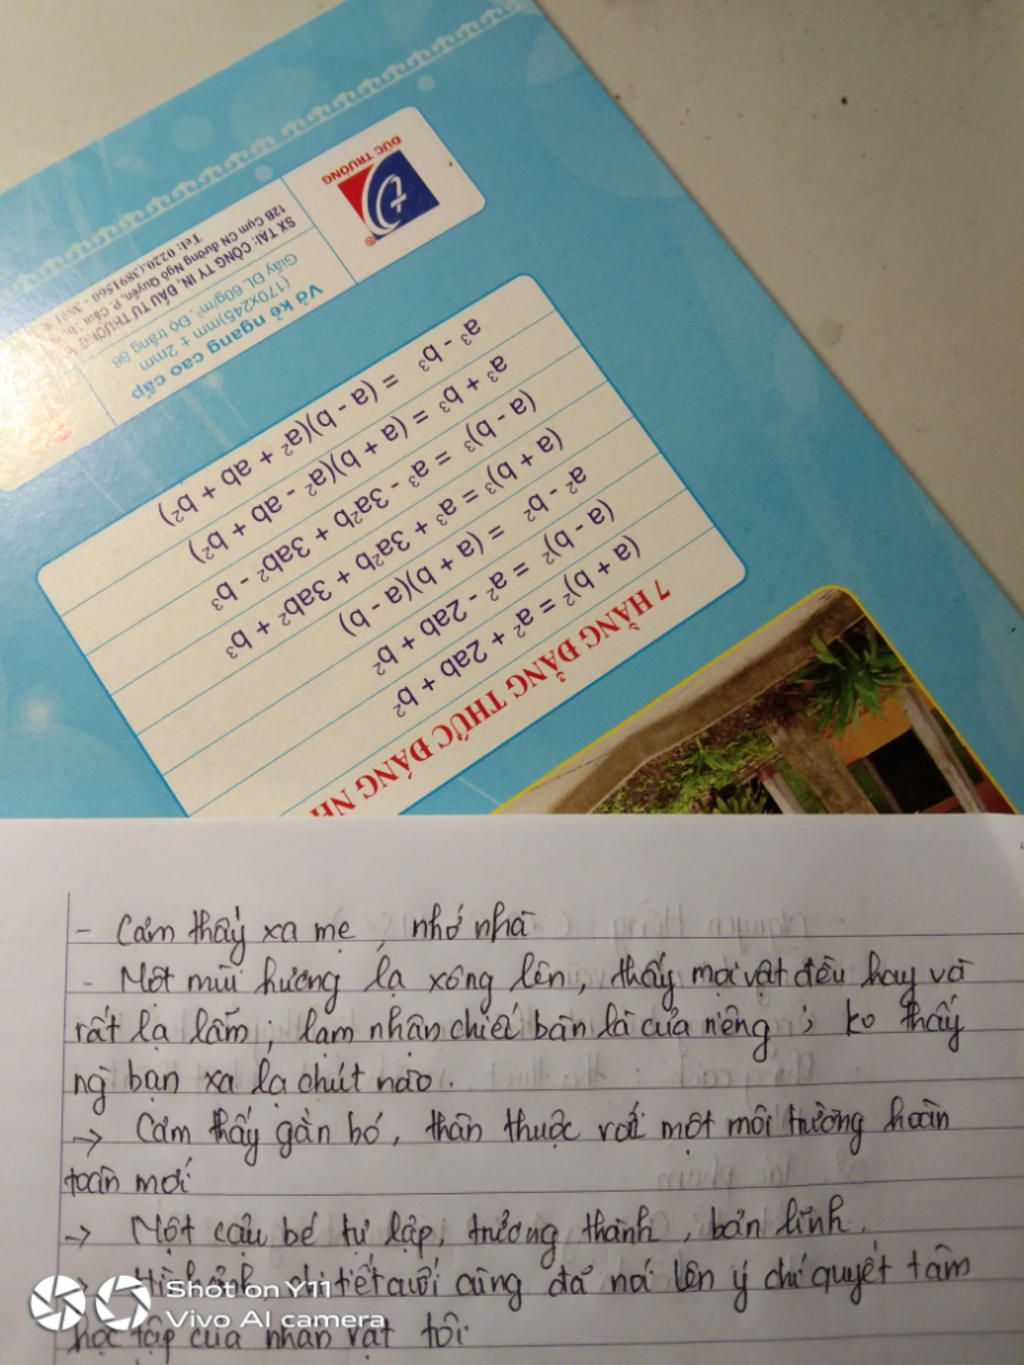 ĐỨC TRƯỜNG
®
Vở kẻ ngang cao cấp
(170x245)mm ± 2mm
Giấy ĐL 60g/m², Độ trắng 86
SX TẠI: CÔNG TY IN, ĐẦU TƯ THƯƠNG
12B Cụm CN đường Ngô Quyền, P. Cẩm
Tel: 0220.(3891560 -
7 HẰNG ĐẲNG THỨC ĐÁNG NH
(a + b)² = a² + 2ab + b²
(a - b)² = a² - 2ab + b²
a² - b² = (a + b)(a - b)
(a + b)³ = a³ + 3a²b + 3ab² + b³
(a - b)³ = a³ - 3a²b + 3ab² - b³
a³ + b³ = (a + b)(a² - ab + b²)
a³ - b³ = (a - b)(a² + ab + b²)
- Cảm thấy xa mẹ, nhớ nhà
- Một mùi hương lạ xông lên, thấy mọi vật đều hay và
rất lạ lắm; lạm nhận chiếc bàn là của riêng; ko thấy
ng bạn xa lạ chút nào.
→ Cảm thấy gắn bó, thân thuộc với một môi trường hoàn
toàn mới
→ Một cậu bé tự lập, trưởng thành, bản lĩnh.
→ chi tiết cuối cùng đã nói lên ý chí quyết tâm
học tập của nhân vật tôi
Shot on Y11
Vivo AI camera